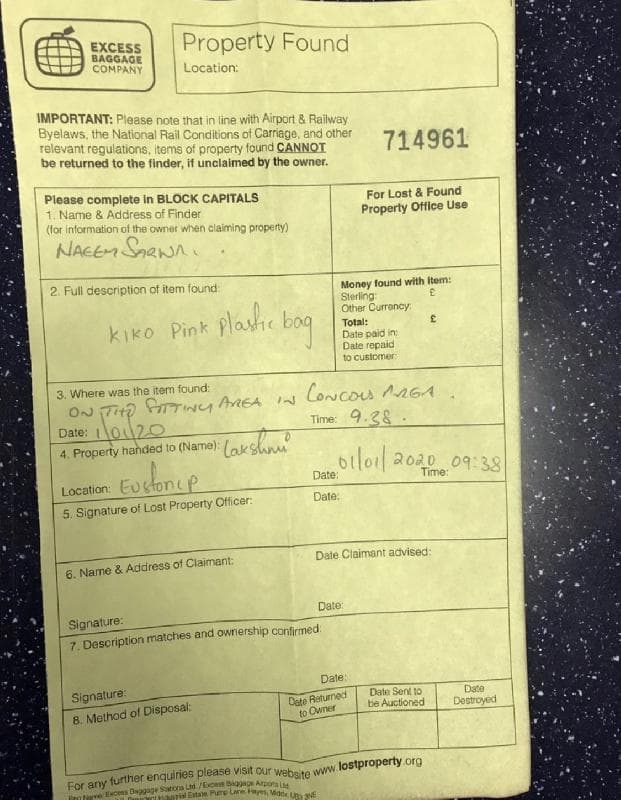 EXCESS
BAGGAGE
COMPANY
Property Found
Location:
IMPORTANT: Please note that in line with Airport & Railway
Byelaws, the National Rail Conditions of Carriage, and other
relevant regulations, items of property found CANNOT
be returned to the finder, if unclaimed by the owner.
714961
Please complete in BLOCK CAPITALS
1. Name & Address of Finder
(for information of the owner when claiming property)
NAEEM
For Lost & Found
Property Office Use
2. Full description of item found:
KIKO Pink Plastic bag
Money found with Item:
Sterling: £
Other Currency:
Total: £
Date paid in:
Date repaid
to customer:
3. Where was the item found:
ON THE SITTING AREA IN CONCOUS AREA.
Date: 1/01/20 Time: 9.38.
4. Property handed to (Name): Lakshmi
Location: Euston LP Date: 01/01/2020 Time: 09:38
5. Signature of Lost Property Officer: Date:
6. Name & Address of Claimant: Date Claimant advised:
Signature: Date:
7. Description matches and ownership confirmed:
Signature: Date:
8. Method of Disposal:
Date Returned
to Owner
Date Sent to
be Auctioned
Date
Destroyed
For any further enquiries please visit our website www.lostproperty.org
Name: Excess Baggage Stations Ltd. / Excess Baggage Airports Ltd.
Industrial Estate, Pump Lane, Hayes, Middx, UB3 3NE